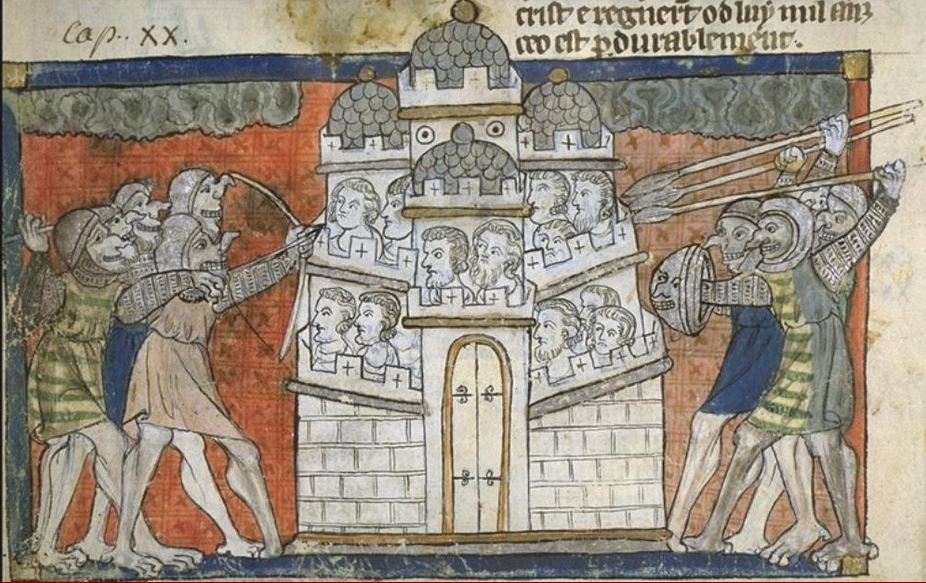 Cap. XX.
crist e regnert od luy mil anz
ceo est pdurablement.